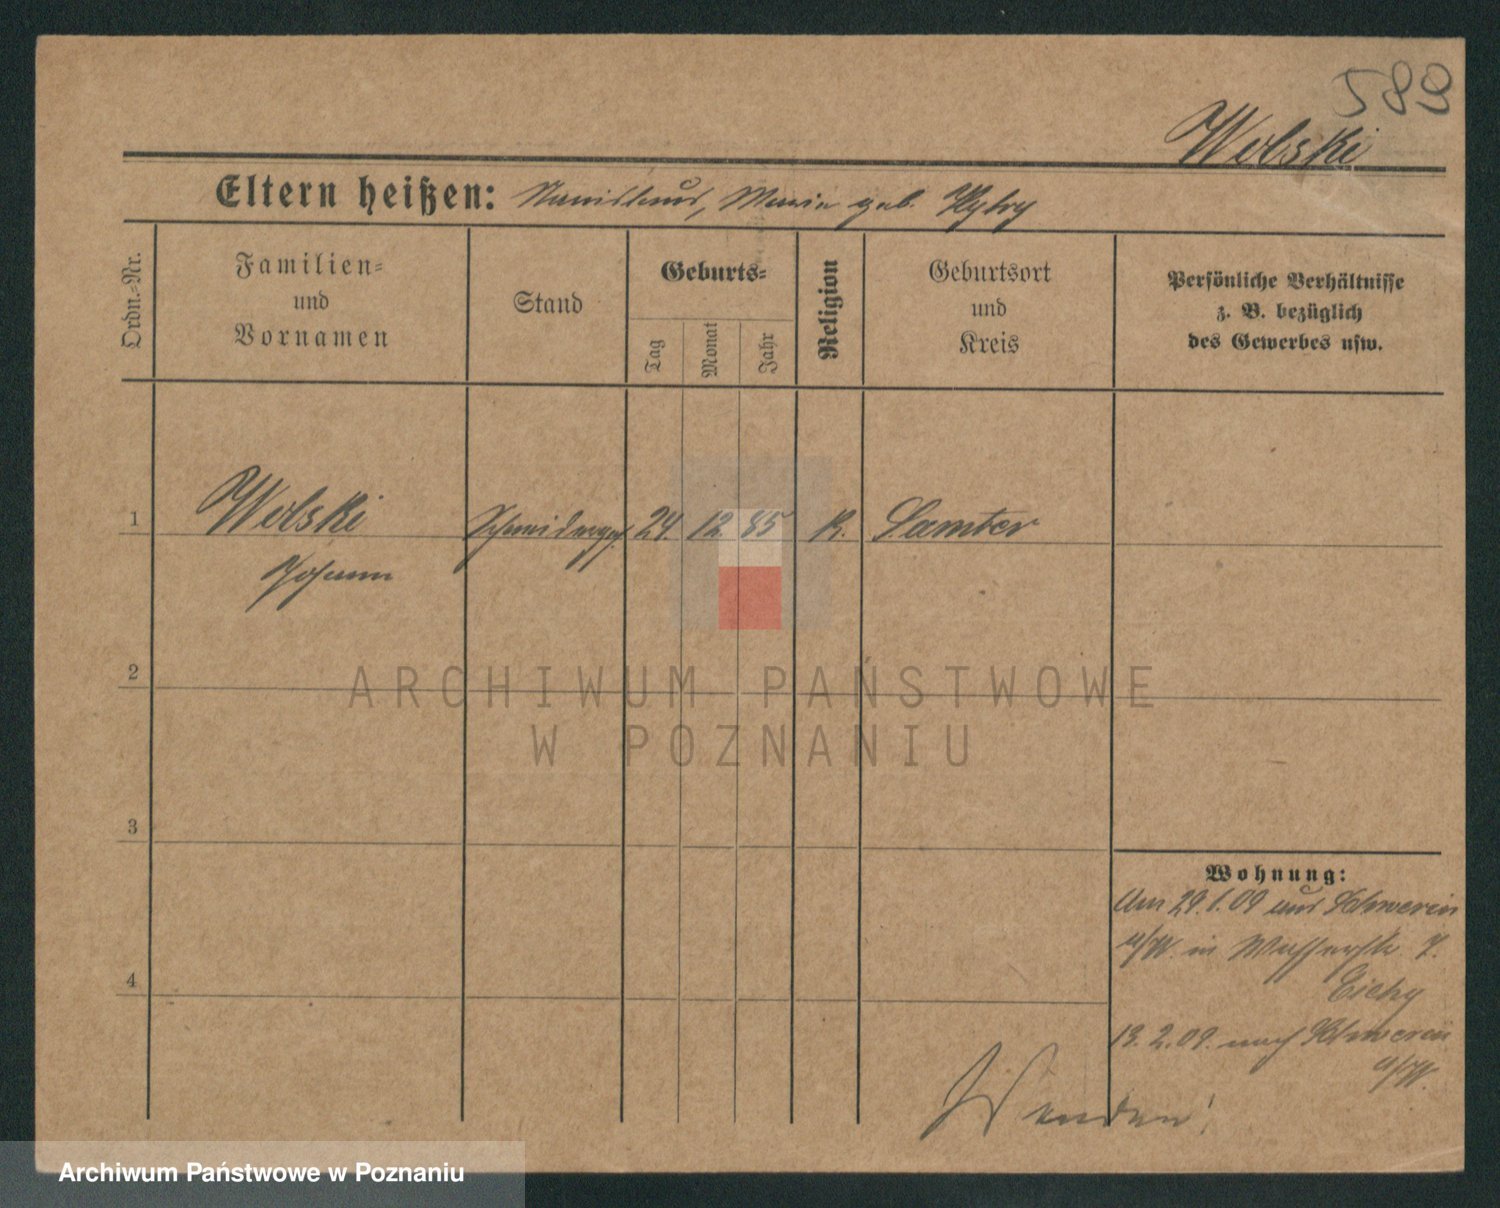 589
Wolski
Eltern heißen: Stanislaus, Maria geb.
Ordn.-Nr.
Familien-
und
Vornamen
Stand
Geburts-
Tag
Monat
Jahr
Religion
Geburtsort
und
Kreis
Persönliche Verhältnisse
z. B. bezüglich
des Gewerbes usw.
1
Wolski
Johann
Schneiderges.
24. 12. 85
K.
Samter
2
ARCHIWUM PAŃSTWOWE
W POZNANIU
3
4
Wohnung:
Am 29.1.09 aus Schwerin
a/W. in Wasserstr. 7.
Cichy
13.2.09. nach Schwerin
a/W.
Wenden!
Archiwum Państwowe w Poznaniu